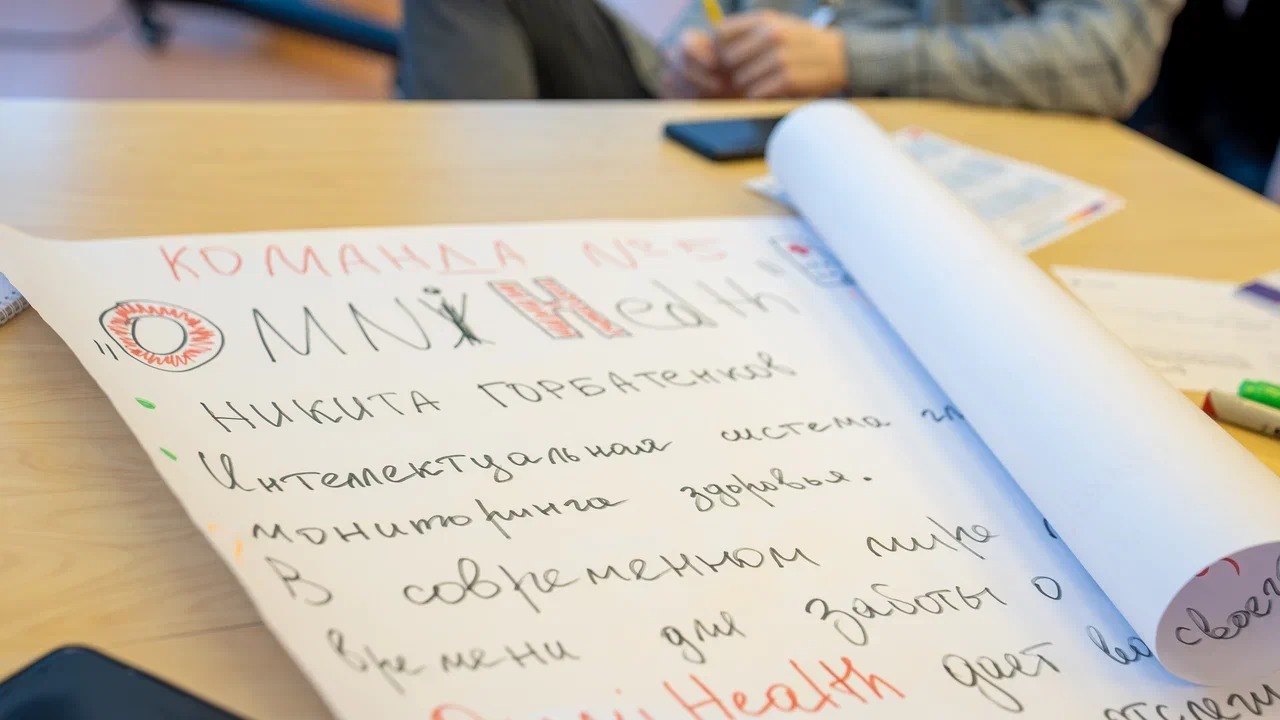 КОМАНДА №5
"OMNiHealth"
НИКИТА ГОРБАТЕНКОВ
Интеллектуальная система
мониторинга здоровья.
В современном мире
времени для заботы о
OmniHealth даёт
своего